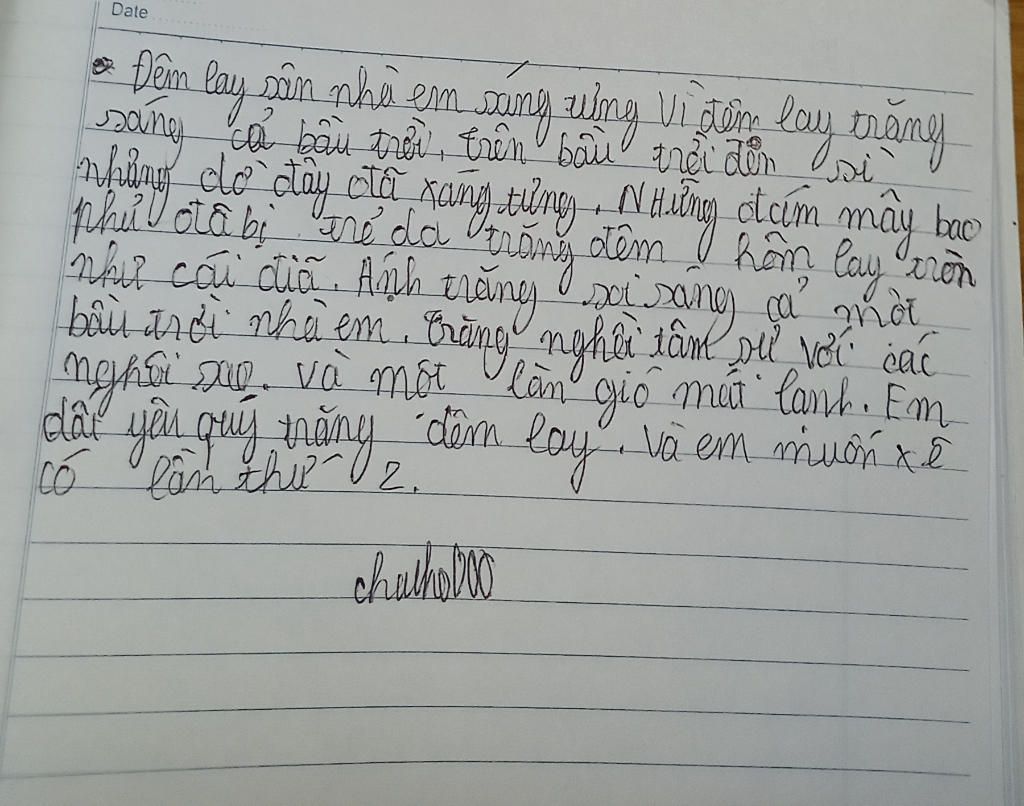 Date
Đêm lay sân nhà em sáng ưng Vì đêm lay trăng
sáng cả bầu trời, trên bầu trời đên sì
nhưng dờ đây đã xáng tưng. NHững đám mây bao
phủ đã bị trẻ da trăng đêm hôm lay tròn
như cái điã. Ánh trăng soi sáng cả một
bầu trời nhà em. trăng nghồi tâm sự với các
nghôi sao. và một làn gió mát lanh. Em
dất yêu quý trăng đêm lay. Và em muốn xẽ
có lần thứ 2.